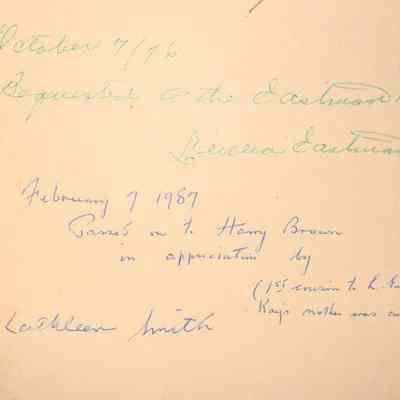 October 7/76
Bequested to the Eastman
Eastman
February 7 1987
Passed on to Harry Brown
in appreciation by
(1st cousin to L. Ea
Kay's mother was
Kathleen Smith